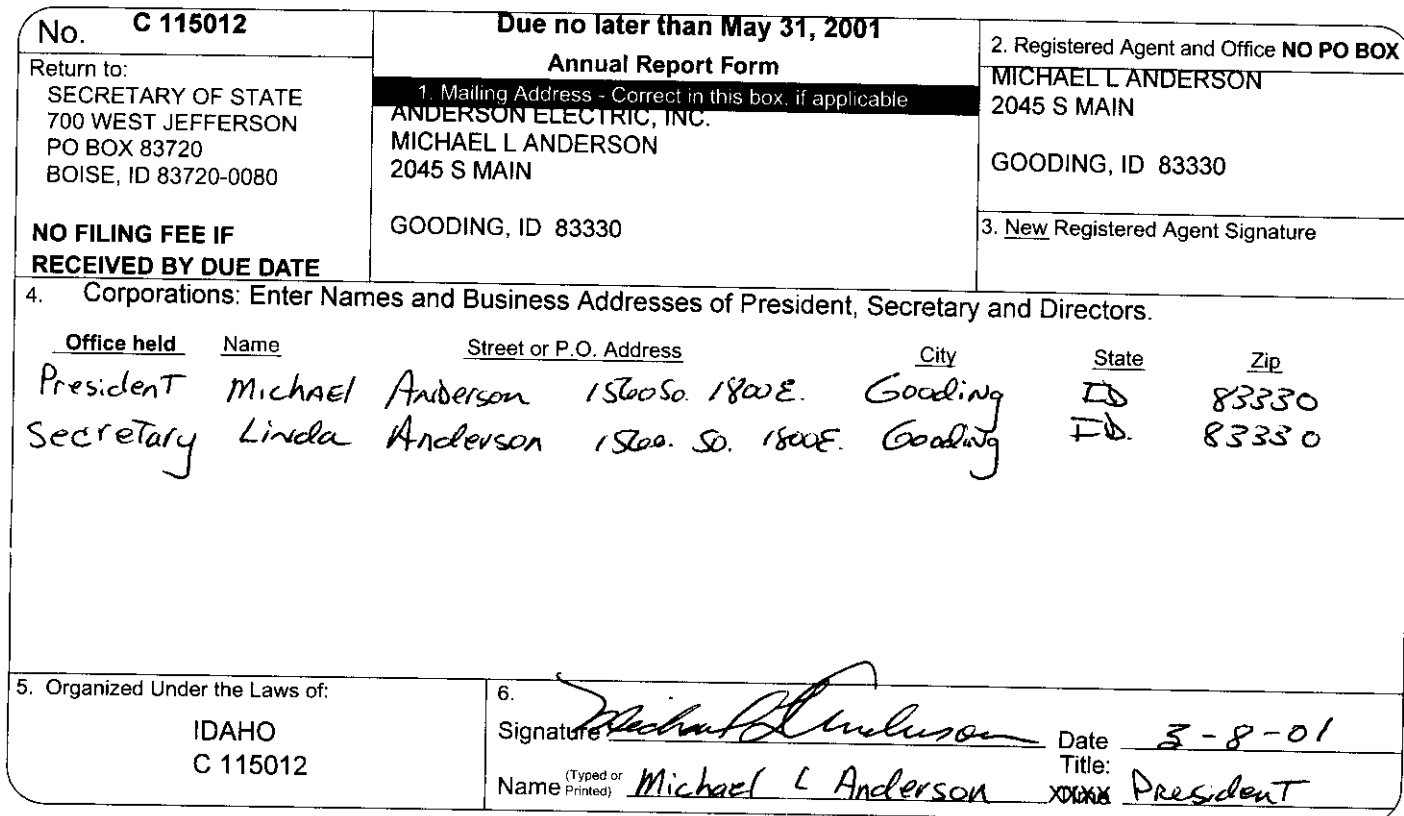 No. C 115012
Return to:
SECRETARY OF STATE
700 WEST JEFFERSON
PO BOX 83720
BOISE, ID 83720-0080
NO FILING FEE IF
RECEIVED BY DUE DATE
Due no later than May 31, 2001
Annual Report Form
1. Mailing Address - Correct in this box, if applicable
ANDERSON ELECTRIC, INC.
MICHAEL L ANDERSON
2045 S MAIN
GOODING, ID 83330
2. Registered Agent and Office NO PO BOX
MICHAEL L ANDERSON
2045 S MAIN
GOODING, ID 83330
3. New Registered Agent Signature
4. Corporations: Enter Names and Business Addresses of President, Secretary and Directors.
Office held Name Street or P.O. Address City State Zip
President Michael Anderson 1560 So. 1800 E. Gooding ID 83330
Secretary Linda Anderson 1560. So. 1800E. Gooding ID. 83330
5. Organized Under the Laws of:
IDAHO
C 115012
6.
Signature Michael L Anderson Date 3-8-01
Name (Typed or Printed) Michael L Anderson Title: President